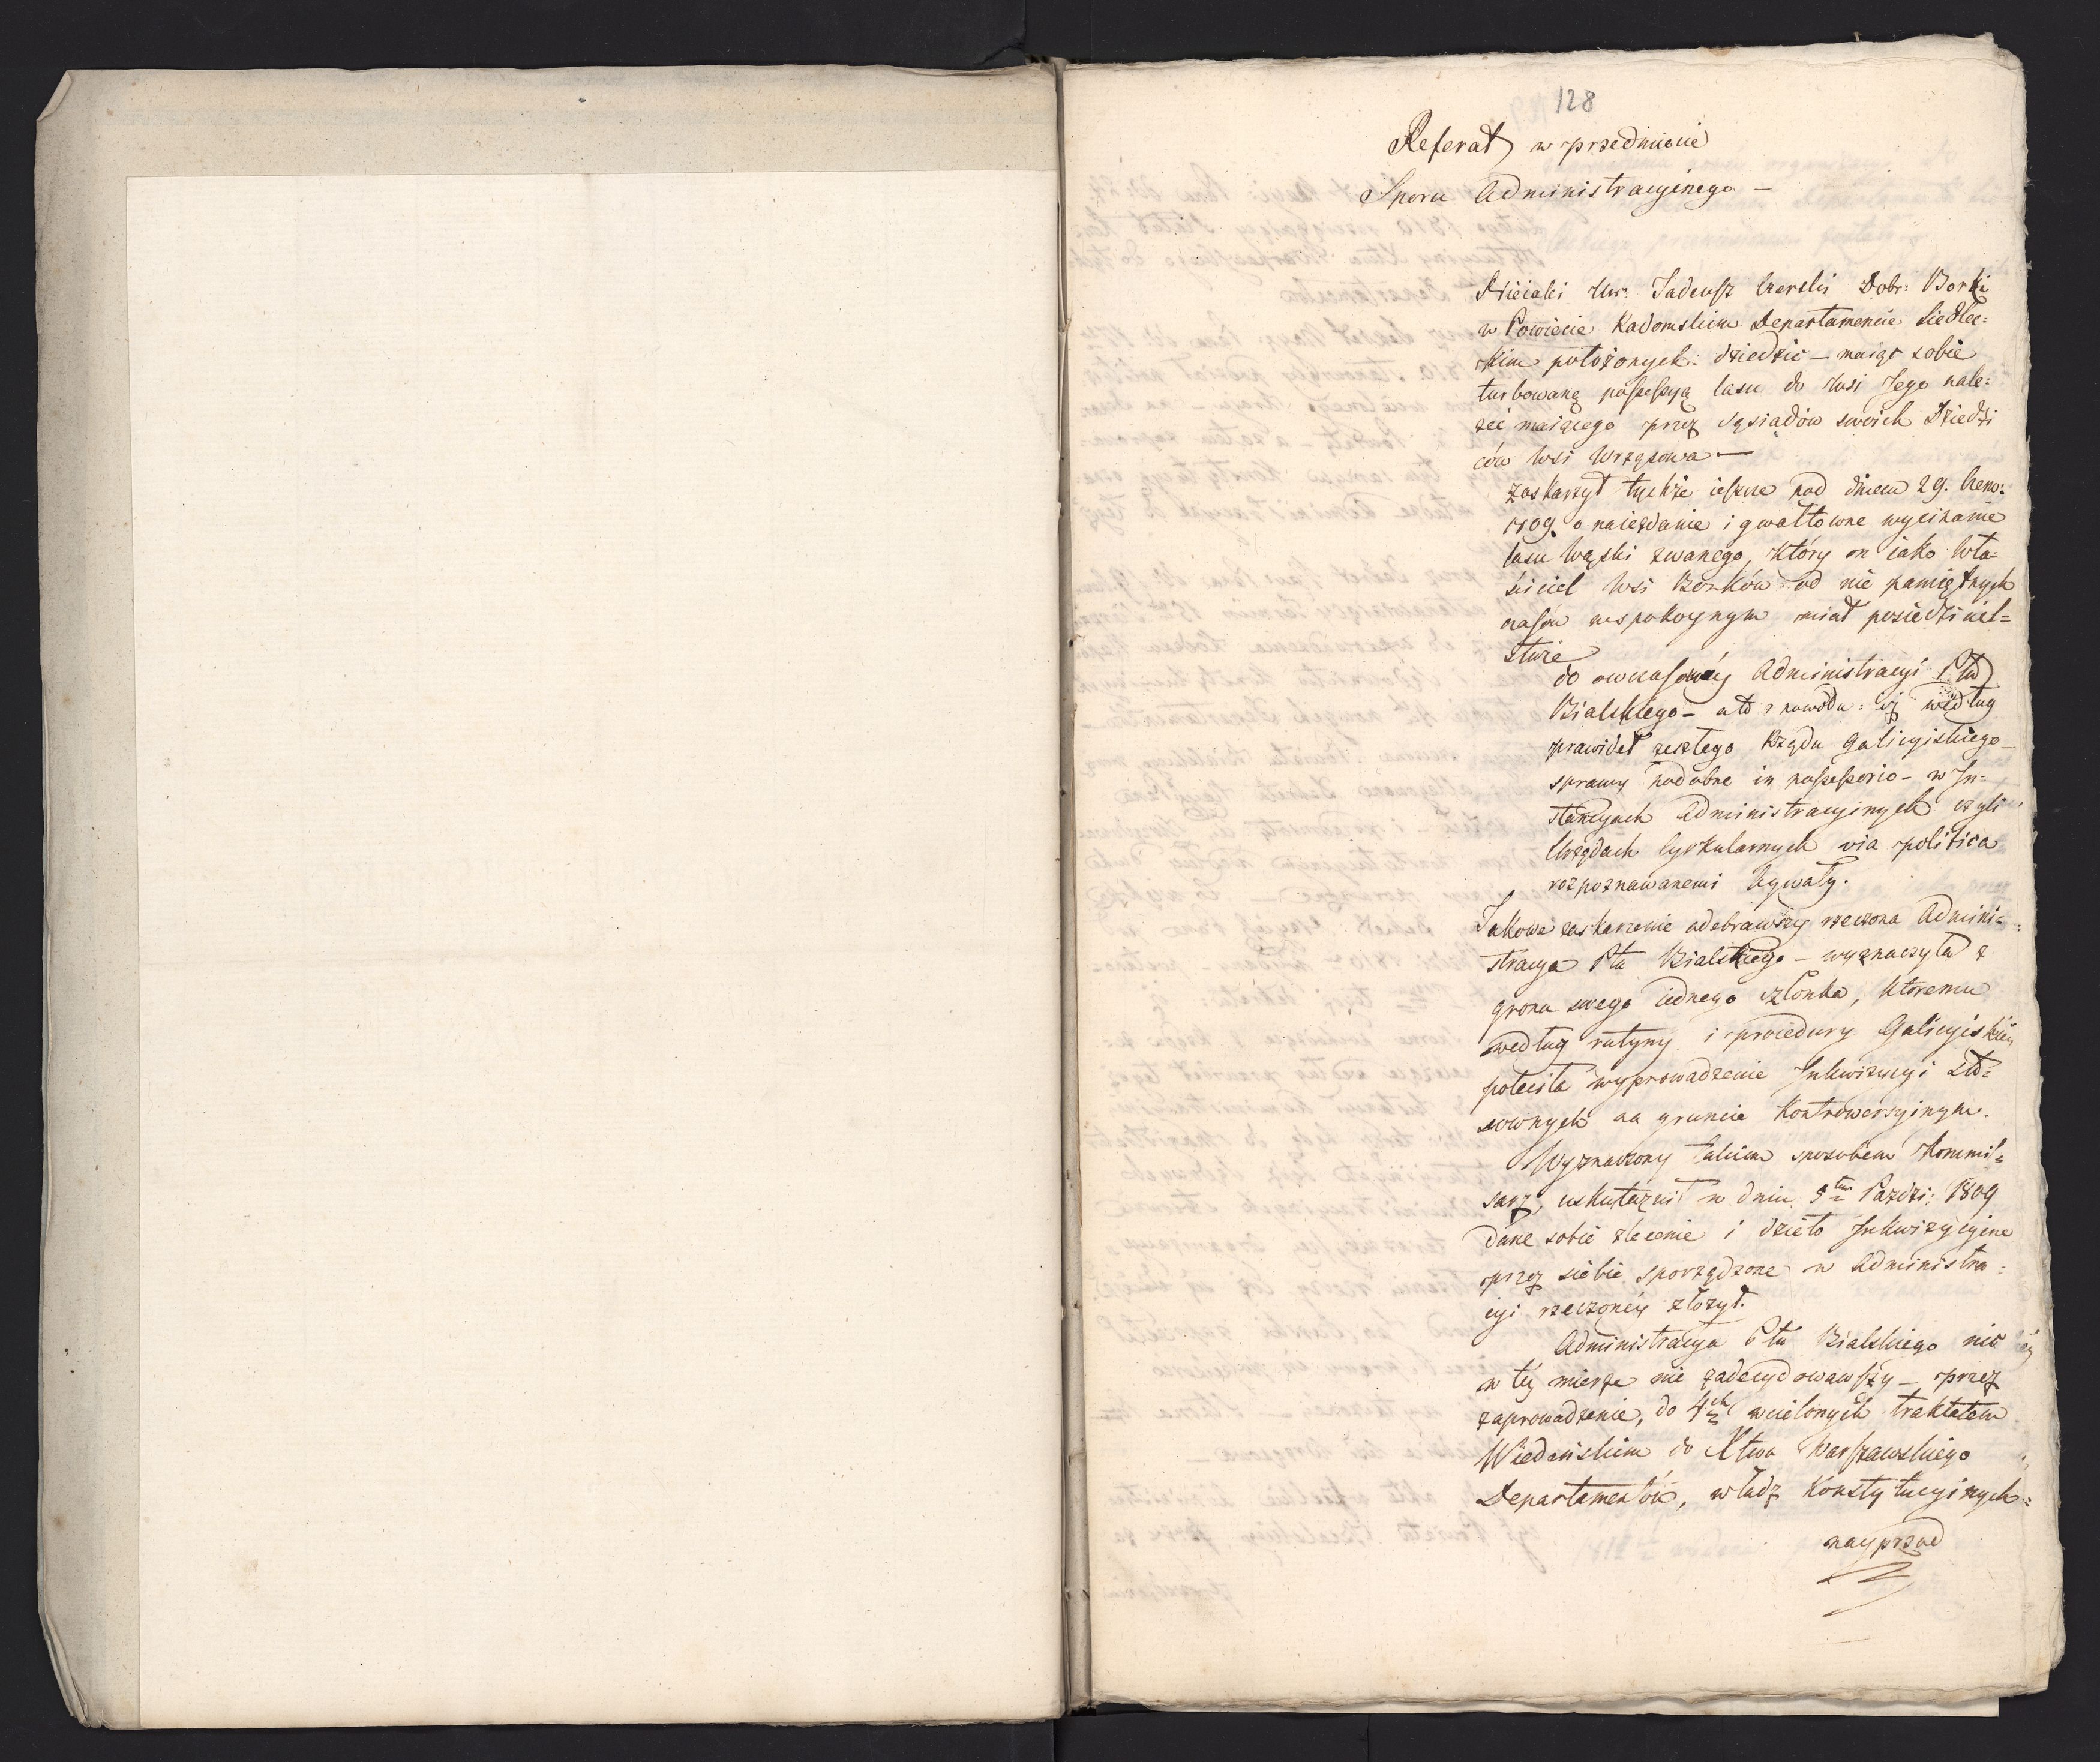 128
Referat w przedmiocie
Sporu Administracyinego —
Nieiaki Ur: Tadeusz Dobr: Borki
w Powiecie Radomskim Departamencie Siedlec=
kim położonych: dziedzic — maiąc sobie
turbowaną possessyą lasu do Wsi Jego nale=
żeć maiącego przez sąsiadów swoich Dziedzi
ców Wsi Wrzosowa —
zaskarzył tychże ieszcze pod dniem 29. Czerw:
1809. o naiezdanie i gwałtowne wycinanie
lasu zwanego, który on iako Wła=
ściciel Wsi Borków od nie pamiętnych
czasów w spokoynym miał posiedziciel=
stwie
do owczasowéy Administracyi Ptu
Bialskiego — a to z powodu: iż według
prawideł zeszłego Rządu Galicyiskiego —
sprawy podobne in possessorio — w In=
stancyach Administracyinych czyli
Urzędach Cyrkularnych via politica
rozpoznawanemi bywały.
Takowe zaskarzenie odebrawszy rzeczona Admini=
stracya Ptu Bialskiego — wyznaczyła z
grona swego iednego członka, któremu
według rutyny i procedury Galicyiskiéy
poleciła wyprowadzenie Inkwizycyi sto=
sownych na gruncie Kontrowersyinym.
Wyznaczony takim sposobem Kommis=
sarz, uskutecznił w dniu 5tm Pazdzi: 1809
dane sobie zlecenie i dzieło Inkwizycyine
przez siebie sporządzone w Administra=
cyi rzeczonéy złożył.
Administracya Ptu Bialskiego nic
w téy mierze nie zadecydowawszy — przez
zaprowadzenie, do 4ch wcielonych traktatem
Wiedeńskim do Xtwa Warszawskiego
Departamentów, władz Konstytucyinych=
nayprzod